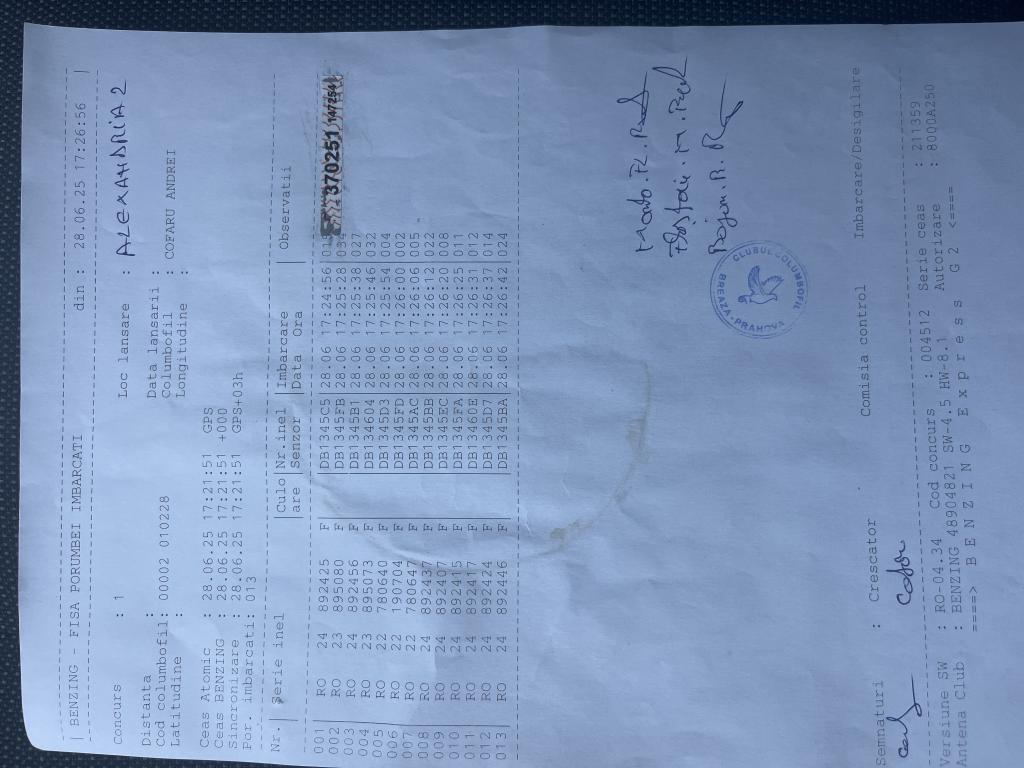 | BENZING - FISA PORUMBEI IMBARCATI din : 28.06.25 17:26:56 |
Concurs : 1 Loc lansare : ALEXANDRIA 2
Distanta : Data lansarii :
Cod columbofil: 00002 010228 Columbofil : COFARU ANDREI
Latitudine : Longitudine :
Ceas Atomic : 28.06.25 17:21:51 GPS
Ceas BENZING : 28.06.25 17:21:51 +000
Sincronizare : 28.06.25 17:21:51 GPS+03h
Por. imbarcati: 013
Nr.| Serie inel |Culo|Nr.inel |Imbarcare | Observatii
|are |Senzor |Data Ora |
001 | RO 24 892425 F | |DB1345C5|28.06 17:24:56| 370251 147254
002 | RO 23 895080 F | |DB1345FB|28.06 17:25:28|
003 | RO 24 892456 F | |DB1345B1|28.06 17:25:38|027
004 | RO 23 895073 F | |DB134604|28.06 17:25:46|032
005 | RO 22 780640 F | |DB1345D3|28.06 17:25:54|004
006 | RO 22 190704 F | |DB1345FD|28.06 17:26:00|002
007 | RO 22 780647 F | |DB1345AC|28.06 17:26:06|005
008 | RO 24 892437 F | |DB1345BB|28.06 17:26:12|022
009 | RO 24 892407 F | |DB1345EC|28.06 17:26:20|008
010 | RO 24 892415 F | |DB1345FA|28.06 17:26:25|011
011 | RO 24 892417 F | |DB13460E|28.06 17:26:31|012
012 | RO 24 892424 F | |DB1345D7|28.06 17:26:37|014
013 | RO 24 892446 F | |DB1345BA|28.06 17:26:42|024
CLUBUL COLUMBOFIL
BREAZA - PRAHOVA
Semnaturi : Crescator Comisia control Imbarcare/Desigilare
Versiune SW : RO-04.34 Cod concurs : 004512 Serie ceas : 211359
Antena Club : BENZING 48904821 SW-4.5 HW-8.1 Autorizare : 8000A250
====> B E N Z I N G E x p r e s s G 2 <====